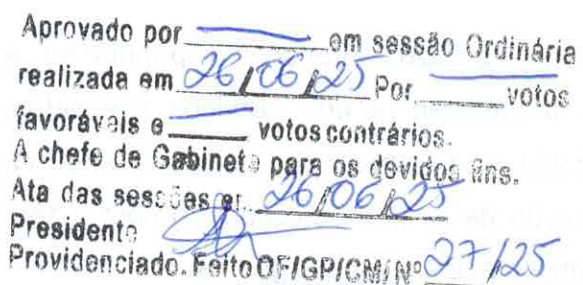 Aprovado por ______ em sessão Ordinária
realizada em 26/06/25 Por ______ votos
favoráveis e ______ votos contrários.
A chefe de Gabinete para os devidos fins.
Ata das sessões er. 26/06/25
Presidente
Providenciado. Feito OF/GP/CM/Nº 27/25